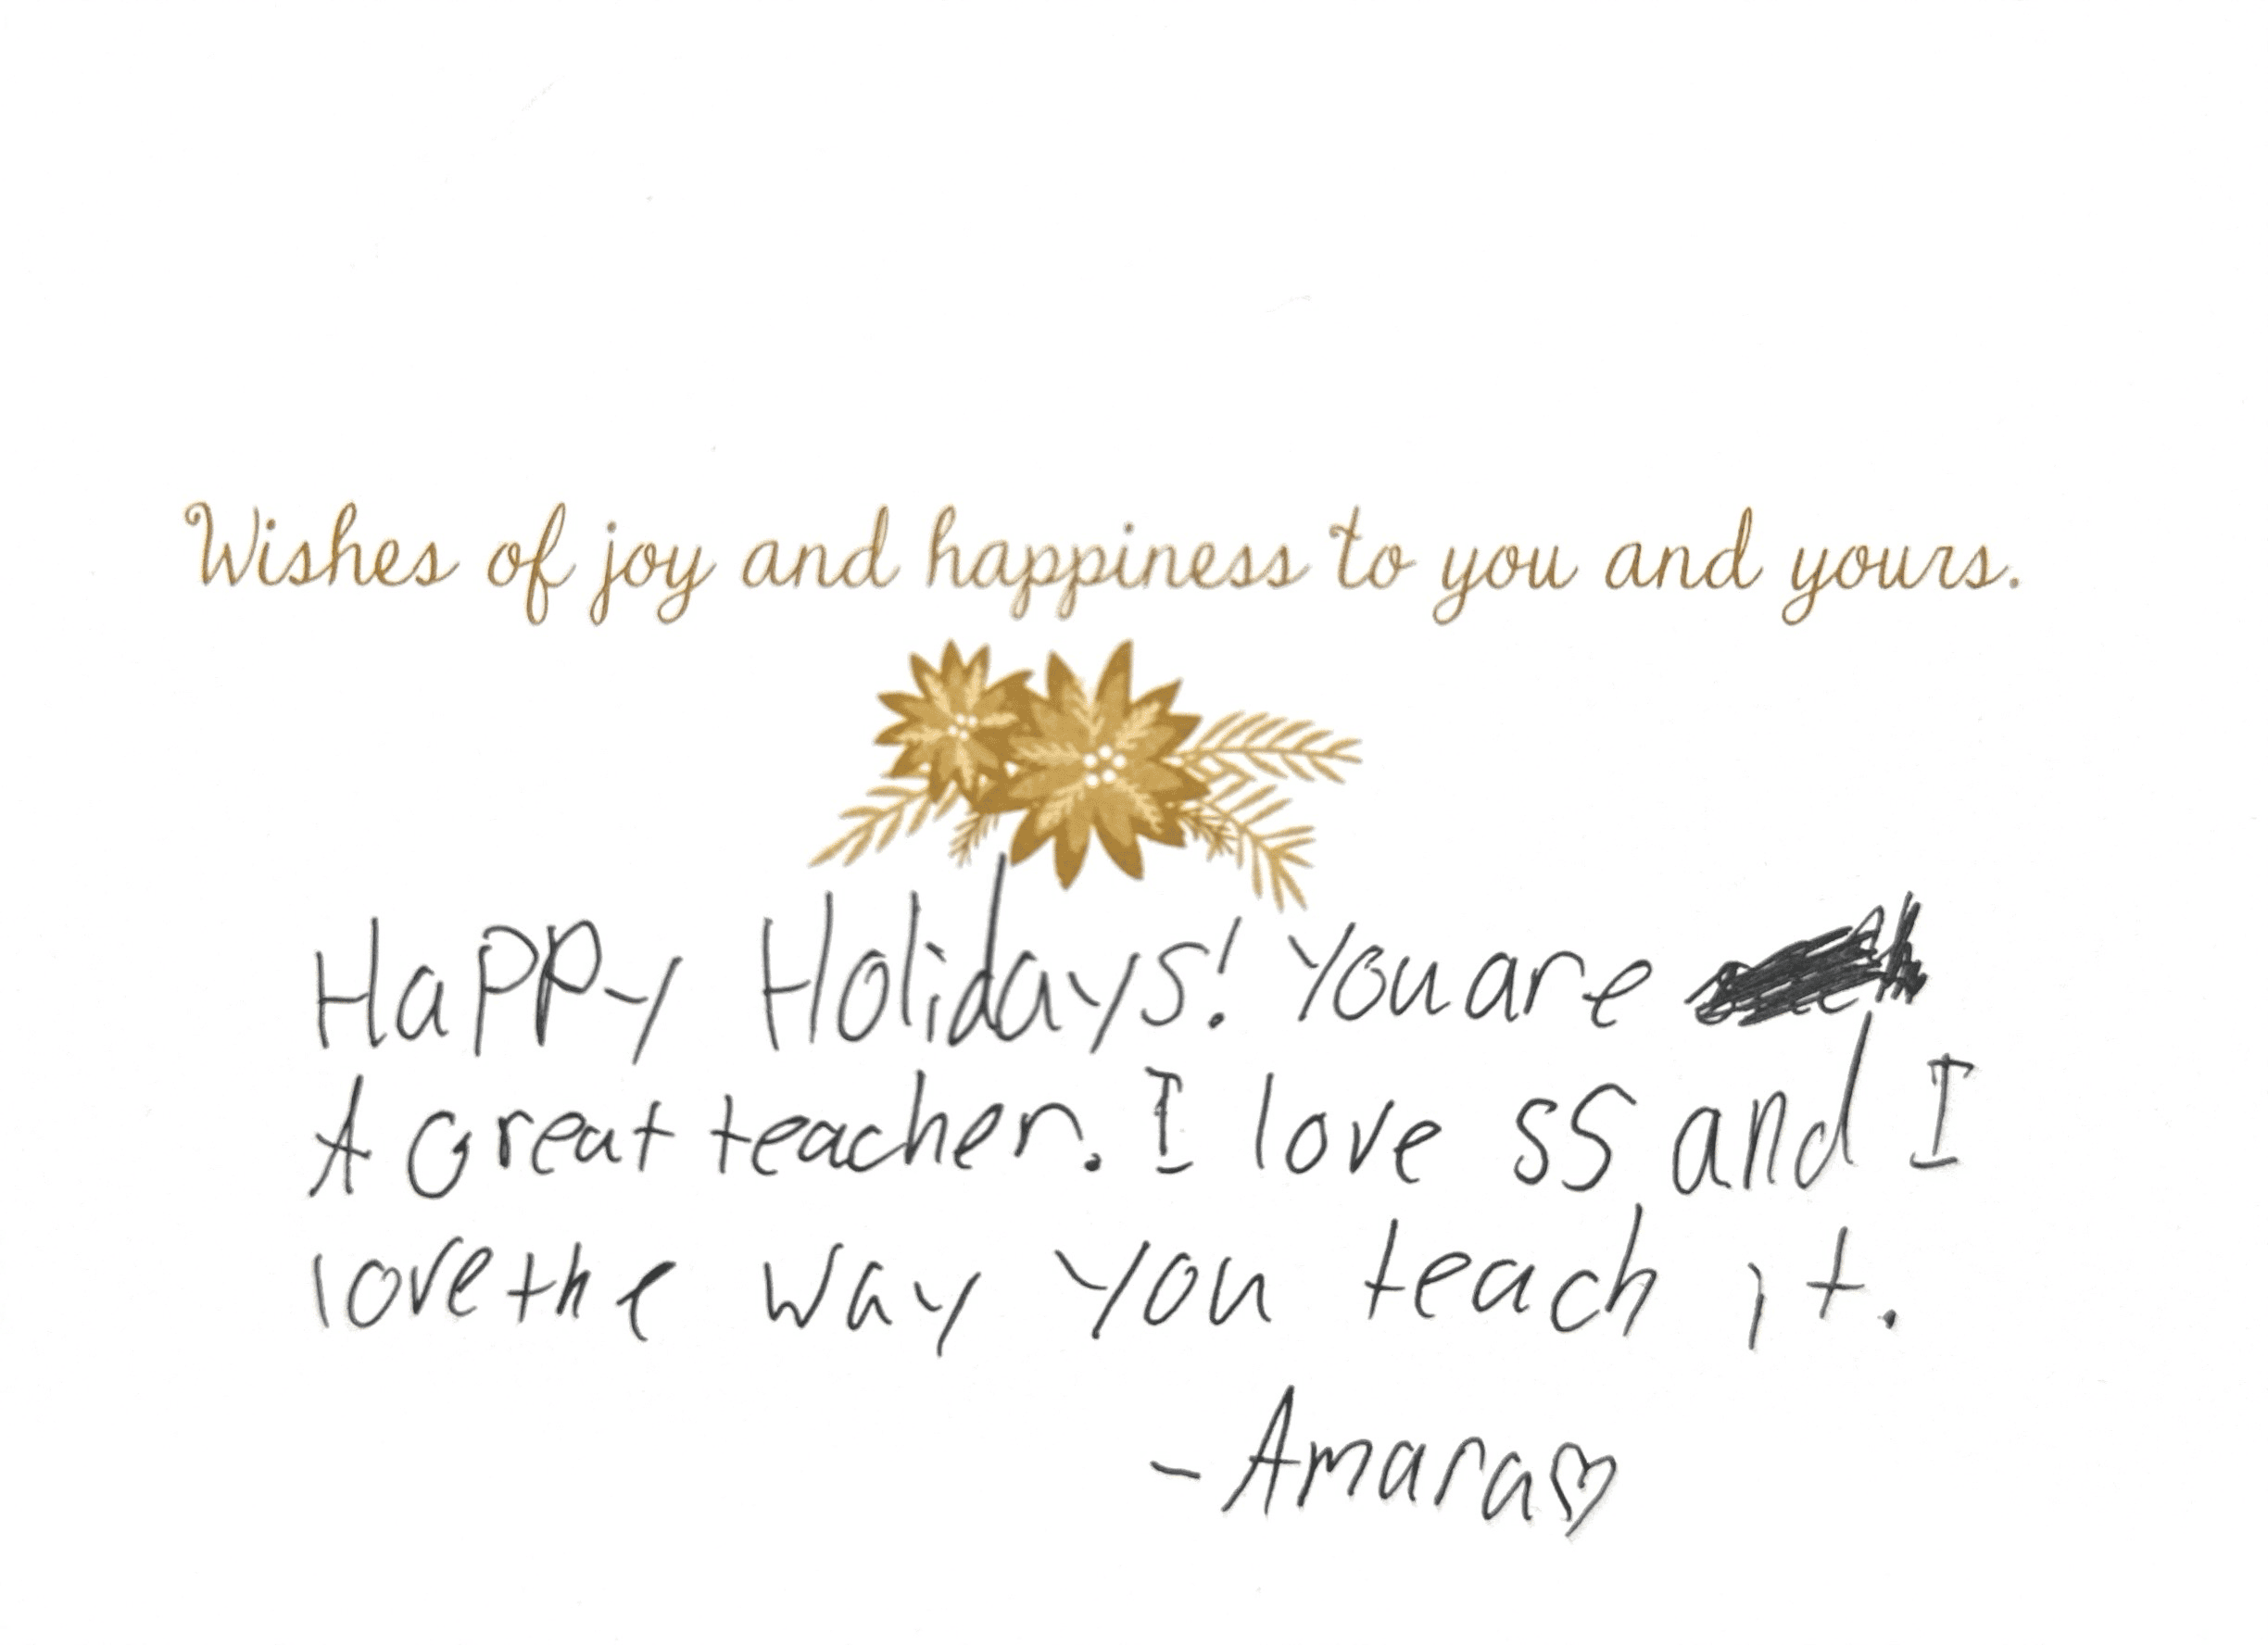 Wishes of joy and happiness to you and yours.
Happy Holidays! You are
A Great teacher. I love SS and I
love the way you teach it.
- Amara♡